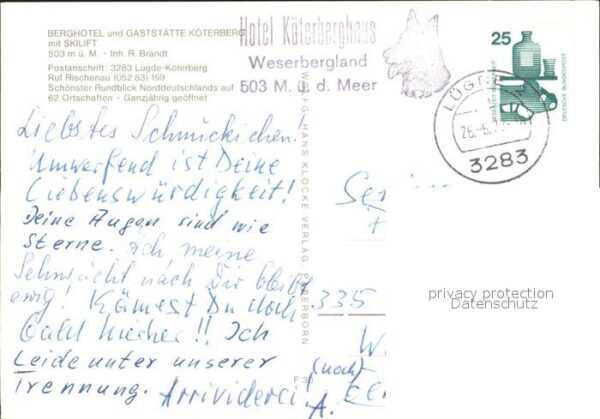 BERGHOTEL und GASTSTÄTTE KÖTERBERG
mit SKILIFT
503 m ü. M. - Inh. R. Brandt
Postanschrift: 3283 Lügde-Köterberg
Ruf Rischenau (052 83) 159
Schönster Rundblick Norddeutschlands auf
62 Ortschaften - Ganzjährig geöffnet
Hotel Köterberghaus
Weserbergland
503 M. ü. d. Meer
25
DEUTSCHE BUNDESPOST
LÜGDE
3283
Liebstes Schmuckchen!
Umwerfend ist Deine
Liebenswürdigkeit!
Deine Augen sind wie
Sterne. Ich meine
Sehnsucht nach Dir bleibt
ewig! Kämest Du doch
bald hierher!! Ich
Leide unter unserer
Trennung. Arrividerci!
A.
WOLFGANG HANS KLOCKE VERLAG PADERBORN
F 30
335
(noch)
privacy protection
Datenschutz